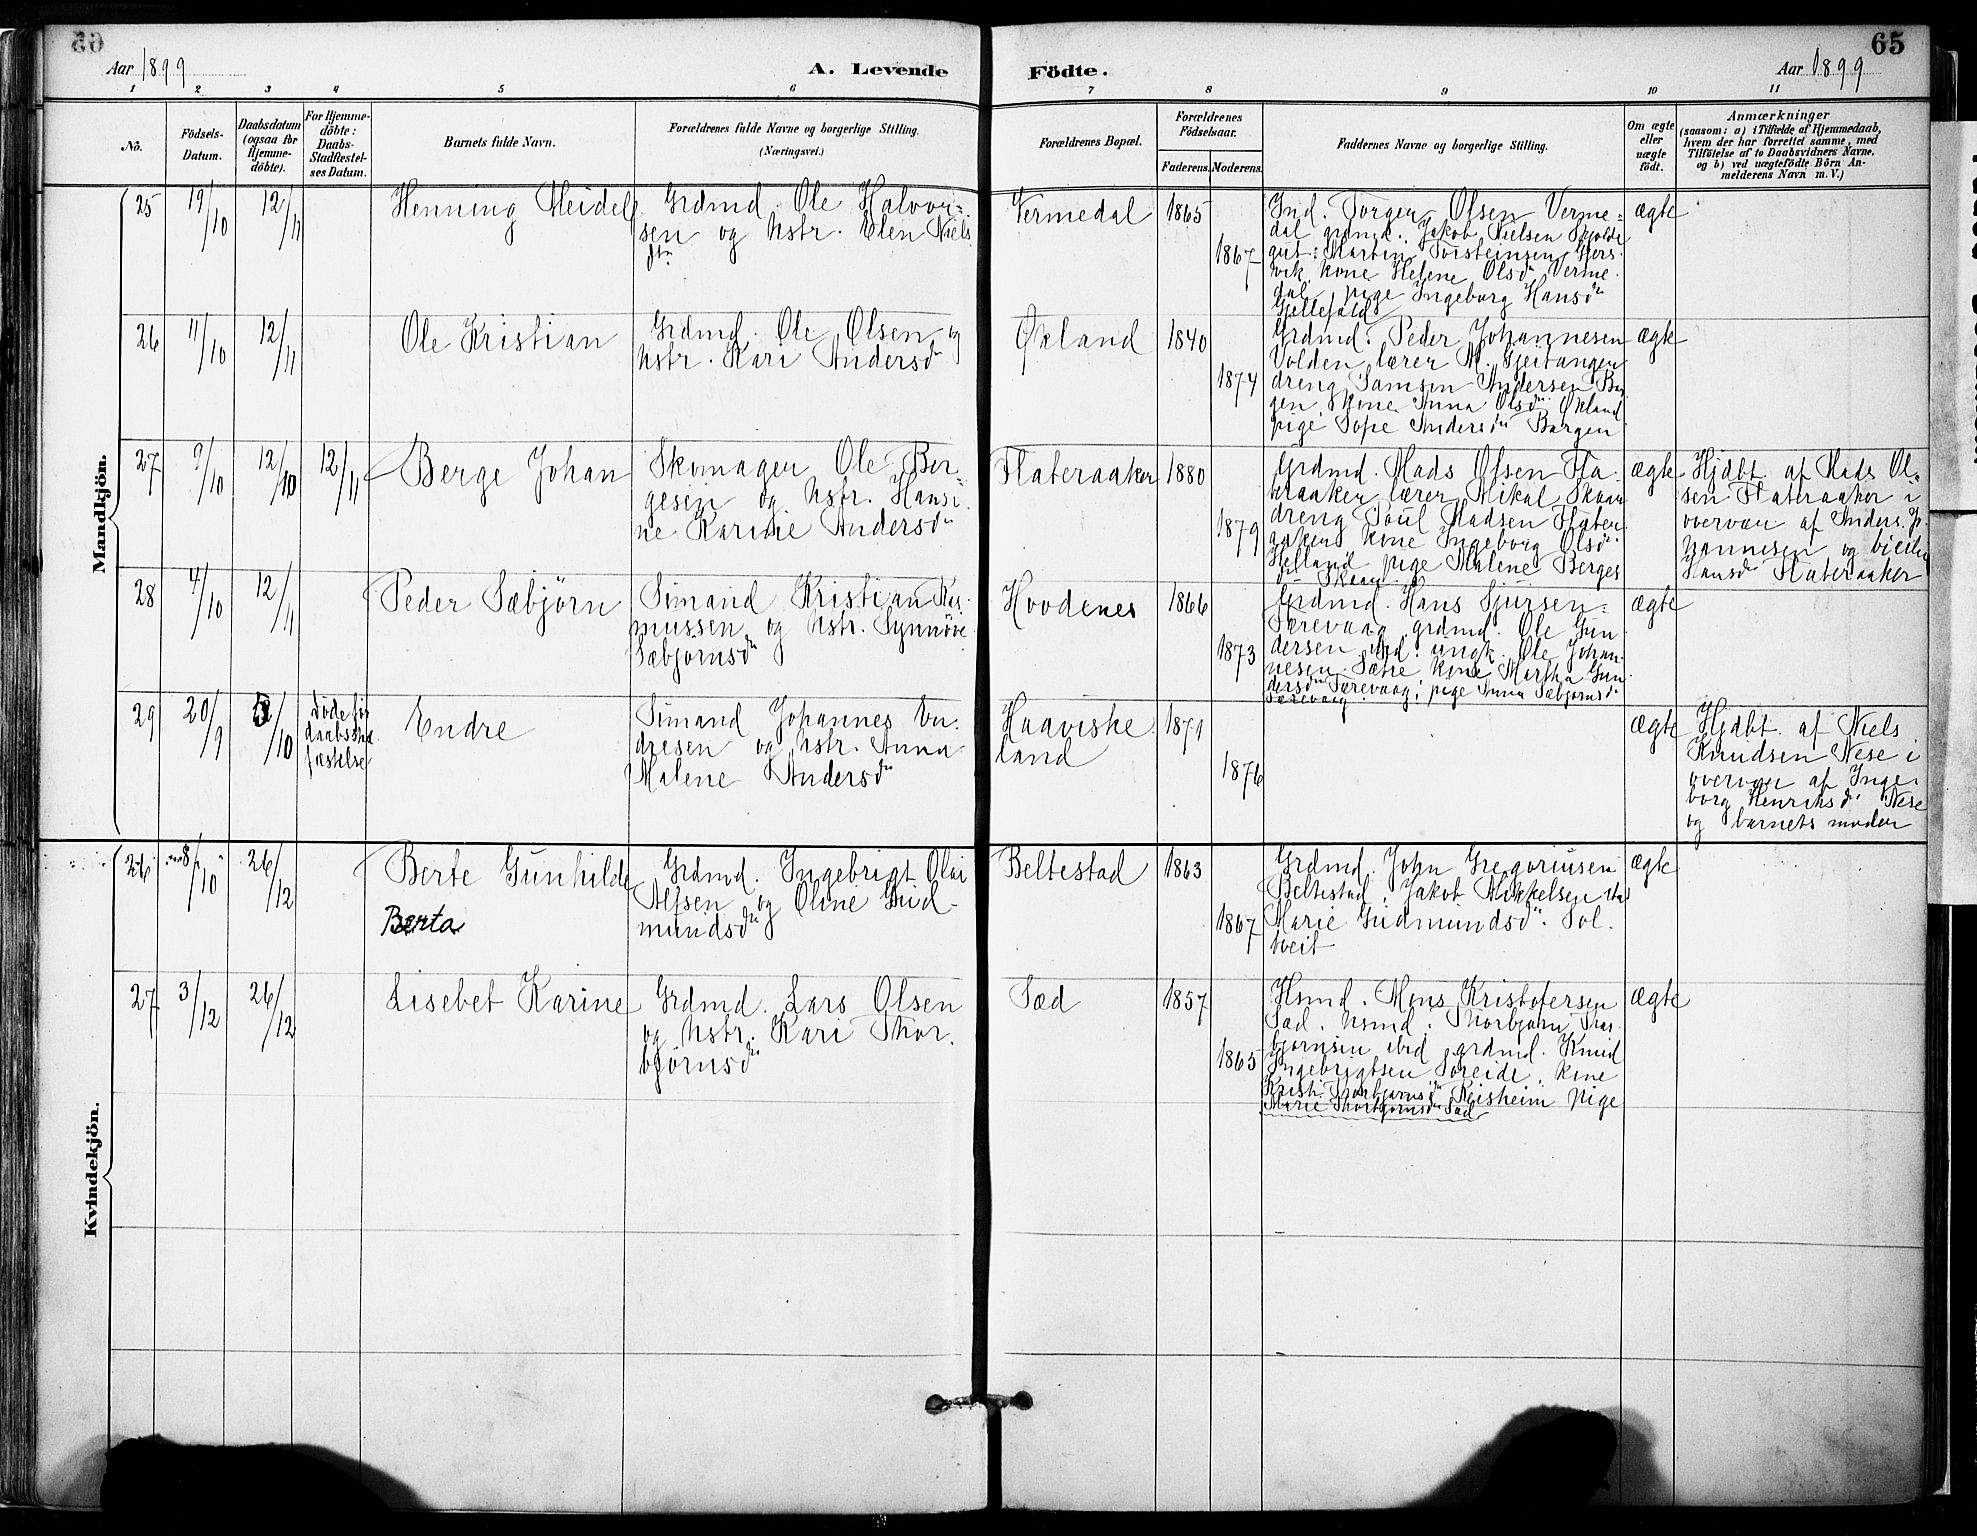 65
Aar 1899
A. Levende
Födte.
Aar 1899
1 2 3 4 5 6 7 8 9 10 11
No.
Födsels-
Datum.
Daabsdatum
(ogsaa for
Hjemme-
döbte).
For Hjemme-
döbte:
Daabs-
Stadfæstel-
ses Datum.
Barnets fulde Navn.
Forældrenes fulde Navne og borgerlige Stilling.
(Næringsvei.)
Forældrenes Bopæl.
Forældrenes
Födselsaar.
Faderens. Moderens.
Faddernes Navne og borgerlige Stilling.
Om ægte
eller
uægte
födt.
Anmærkninger
(saasom: a) i Tilfælde af Hjemmedaab,
hvem der har forrettet samme, med
Tilföielse af to Daabsvidners Navne.
og b) ved uægtefödte Börn An-
melderens Navn m. V.)
Mandkjön.
25
19/10
12/11
Henning Meidel
Grdmd. Ole Halvor-
sen og hstr. Elen Niels
dtr
Vermedal
1865
1867
Ind. Torger Olsen Verme-
dal grdmd. Jakob Nielsen
gut: Martin Torsteinsen
vik kone Helene Olsdr Verme-
dal, pige Ingeborg Hansdr
Gjillefald
ægte
26
11/10
12/11
Ole Kristian
Grdmd. Ole Olsen og
hstr. Kari Andersdr
Økland
1840
1874
Grdmd. Peder Johannesen
Volden lærer M. Gjeitangen
dreng Samson Andersen Bar
gen kone Anna Olsdr Økland
pige Sofie Andersdr Bargen
ægte
27
9/10
12/10
12/11
Berge Johan
Skomager Ole Ber-
gesen og hstr. Hansi-
ne Karine Andersdr
Flateraaker
1880
1879
Grdmd. Mads Olsen Fla-
teraaker lærer Mikal Skaar
dreng Poul Madsen Flater-
aaker kone Ingeborg Olsdr
Helland pige Malene Berges
dr Skaar
ægte
Hjdbt. af Mads Ol-
sen Flateraaker i
overvær af Anders Jo-
hannesen og
Hansdr Flateraaker
28
4/10
12/11
Peder Sæbjørn
Sømand Kristian Ras-
mussen og hstr. Synnøve
Sæbjørnsdr
Hovdenes
1866
1873
Grdmd. Hans Sjursen
Færevaag grdmd. Ole Gun-
dersen ibd. ungk. Ole Johan-
nesen Sætre kone Martha Gun-
dersdr Færevaag, pige Anna Sæbjørnsdr
Færevaag
ægte
29
20/9
/10
Døde før
daabsstad-
fæstelse
Endre
Sømand Johannes En-
dresen og hstr. Anna
Malene Andersdr
Haaviske
land
1871
1876
ægte
Hjdbt. af Niels
Knudsen Nese i
overvær af Inge-
borg Henriksdr Nese
og barnets moder
Kvindekjön.
26
8/10
26/12
Berte Gunhilde
Berta
Grdmd. Ingebrigt Olai
Alfsen og Oline Gud-
mundsdr
Beltestad
1863
1867
Grdmd. John Gregoriusen
Beltestad, Jakob Mikkelsen ibd
Marie Gudmundsdr Sol-
tveit
ægte
27
3/12
26/12
Lisebet Karine
Grdmd. Lars Olsen
og hstr. Kari Thor-
bjørnsdr
Sæd
1857
1865
Hsmd. Mons Kristofersen
Sæd. hsmd. Thorbjørn Thor-
bjørnsen ibid grdmd. Knud
Ingebrigtsen Søreide, kone
Kristi Thorbjørnsdr Reisheim pige
Marie Thorbjørnsdr Sæd
ægte